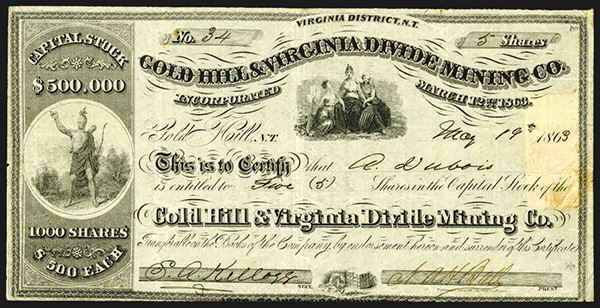 VIRGINIA DISTRICT, N.T.
No. 34
5 Shares
CAPITAL STOCK
$500,000
1000 SHARES
$500 EACH
GOLD HILL & VIRGINIA DIVIDE MINING CO.
INCORPORATED MARCH 12TH 1863.
Gold Hill, N.T. May 19th 1863
This is to Certify that A. Dubois
is entitled to Five (5) Shares in the Capital Stock of the
Gold Hill & Virginia Divide Mining Co.
Transferable on the Books of the Company, by endorsement hereon and surrender of this Certificate
E. A. Kellogg SECY. PREST.